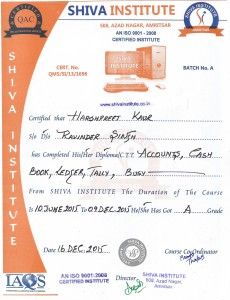 SHIVA INSTITUTE
508, AZAD NAGAR, AMRITSAR
AN ISO 9001 - 2008
CERTIFIED INSTITUTE
QAC
CERT. NO.
QMS/SI/13/1698
BATCH No. A
www.shivainstitute.co.in
SHIVA INSTITUTE
Certified that Harshpreet Kaur
S/o D/o Ravinder Singh
has Completed His/Her Diploma/C.T.T. Accounts, Cash
Book, Ledger, Tally, Busy
From SHIVA INSTITUTE The Duration of The Course
is 10 June 2015 To 09 Dec 2015 He/She Has Got A Grade
Date 16 Dec. 2015
Course Co-ordinator
IAQS
AN ISO 9001:2008
CERTIFIED INSTITUTE
Director
SHIVA INSTITUTE
508, Azad Nagar,
Amritsar